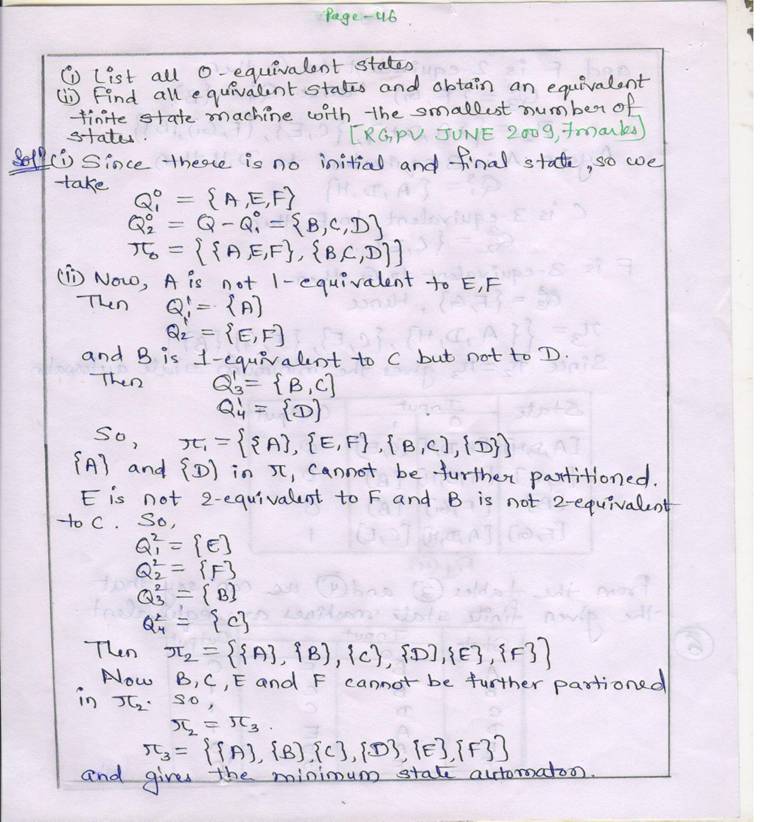 Page-46
(i) List all 0-equivalent states
(ii) Find all equivalent states and obtain an equivalent
finite state machine with the smallest number of
states. [RGPV JUNE 2009, 7marks]
Solⁿ (i) Since there is no initial and final state, so we
take
Q₁⁰ = {A,E,F}
Q₂⁰ = Q - Q₁⁰ = {B,C,D}
π₀ = {{A,E,F}, {B,C,D}}
(ii) Now, A is not 1-equivalent to E,F
Then Q₁¹ = {A}
Q₂¹ = {E,F}
and B is 1-equivalent to C but not to D.
Then Q₃¹ = {B,C}
Q₄¹ = {D}
So, π₁ = {{A}, {E,F}, {B,C}, {D}}
{A} and {D} in π₁ cannot be further partitioned.
E is not 2-equivalent to F and B is not 2-equivalent
to C. So,
Q₁² = {E}
Q₂² = {F}
Q₃² = {B}
Q₄² = {C}
Then π₂ = {{A}, {B}, {C}, {D}, {E}, {F}}
Now B, C, E and F cannot be further partioned
in π₂. So,
π₂ = π₃.
π₃ = {{A}, {B}, {C}, {D}, {E}, {F}}
and gives the minimum state automaton.